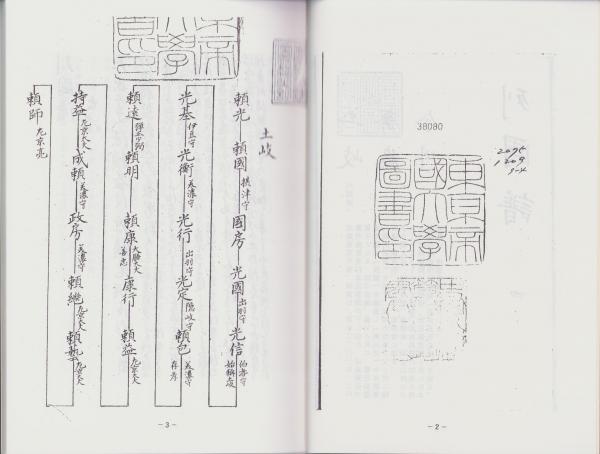 38080
東京帝
國大學
圖書印
- 2 -
東京帝
國大學
圖書印
土岐
頼光 頼國 摂津守 國房 光國 出羽守 光信 伯耆守
光基 伊豆守 光衡 美濃守 光行 出羽守 光定 隠岐守 頼 美濃守
頼遠 頼明 頼康 大膳大夫 善忠 康行 頼益 左京大夫
持益 左京大夫 成頼 美濃守 政房 美濃守 頼継 左京大夫 頼藝 左京大夫
頼師 左京亮
- 3 -